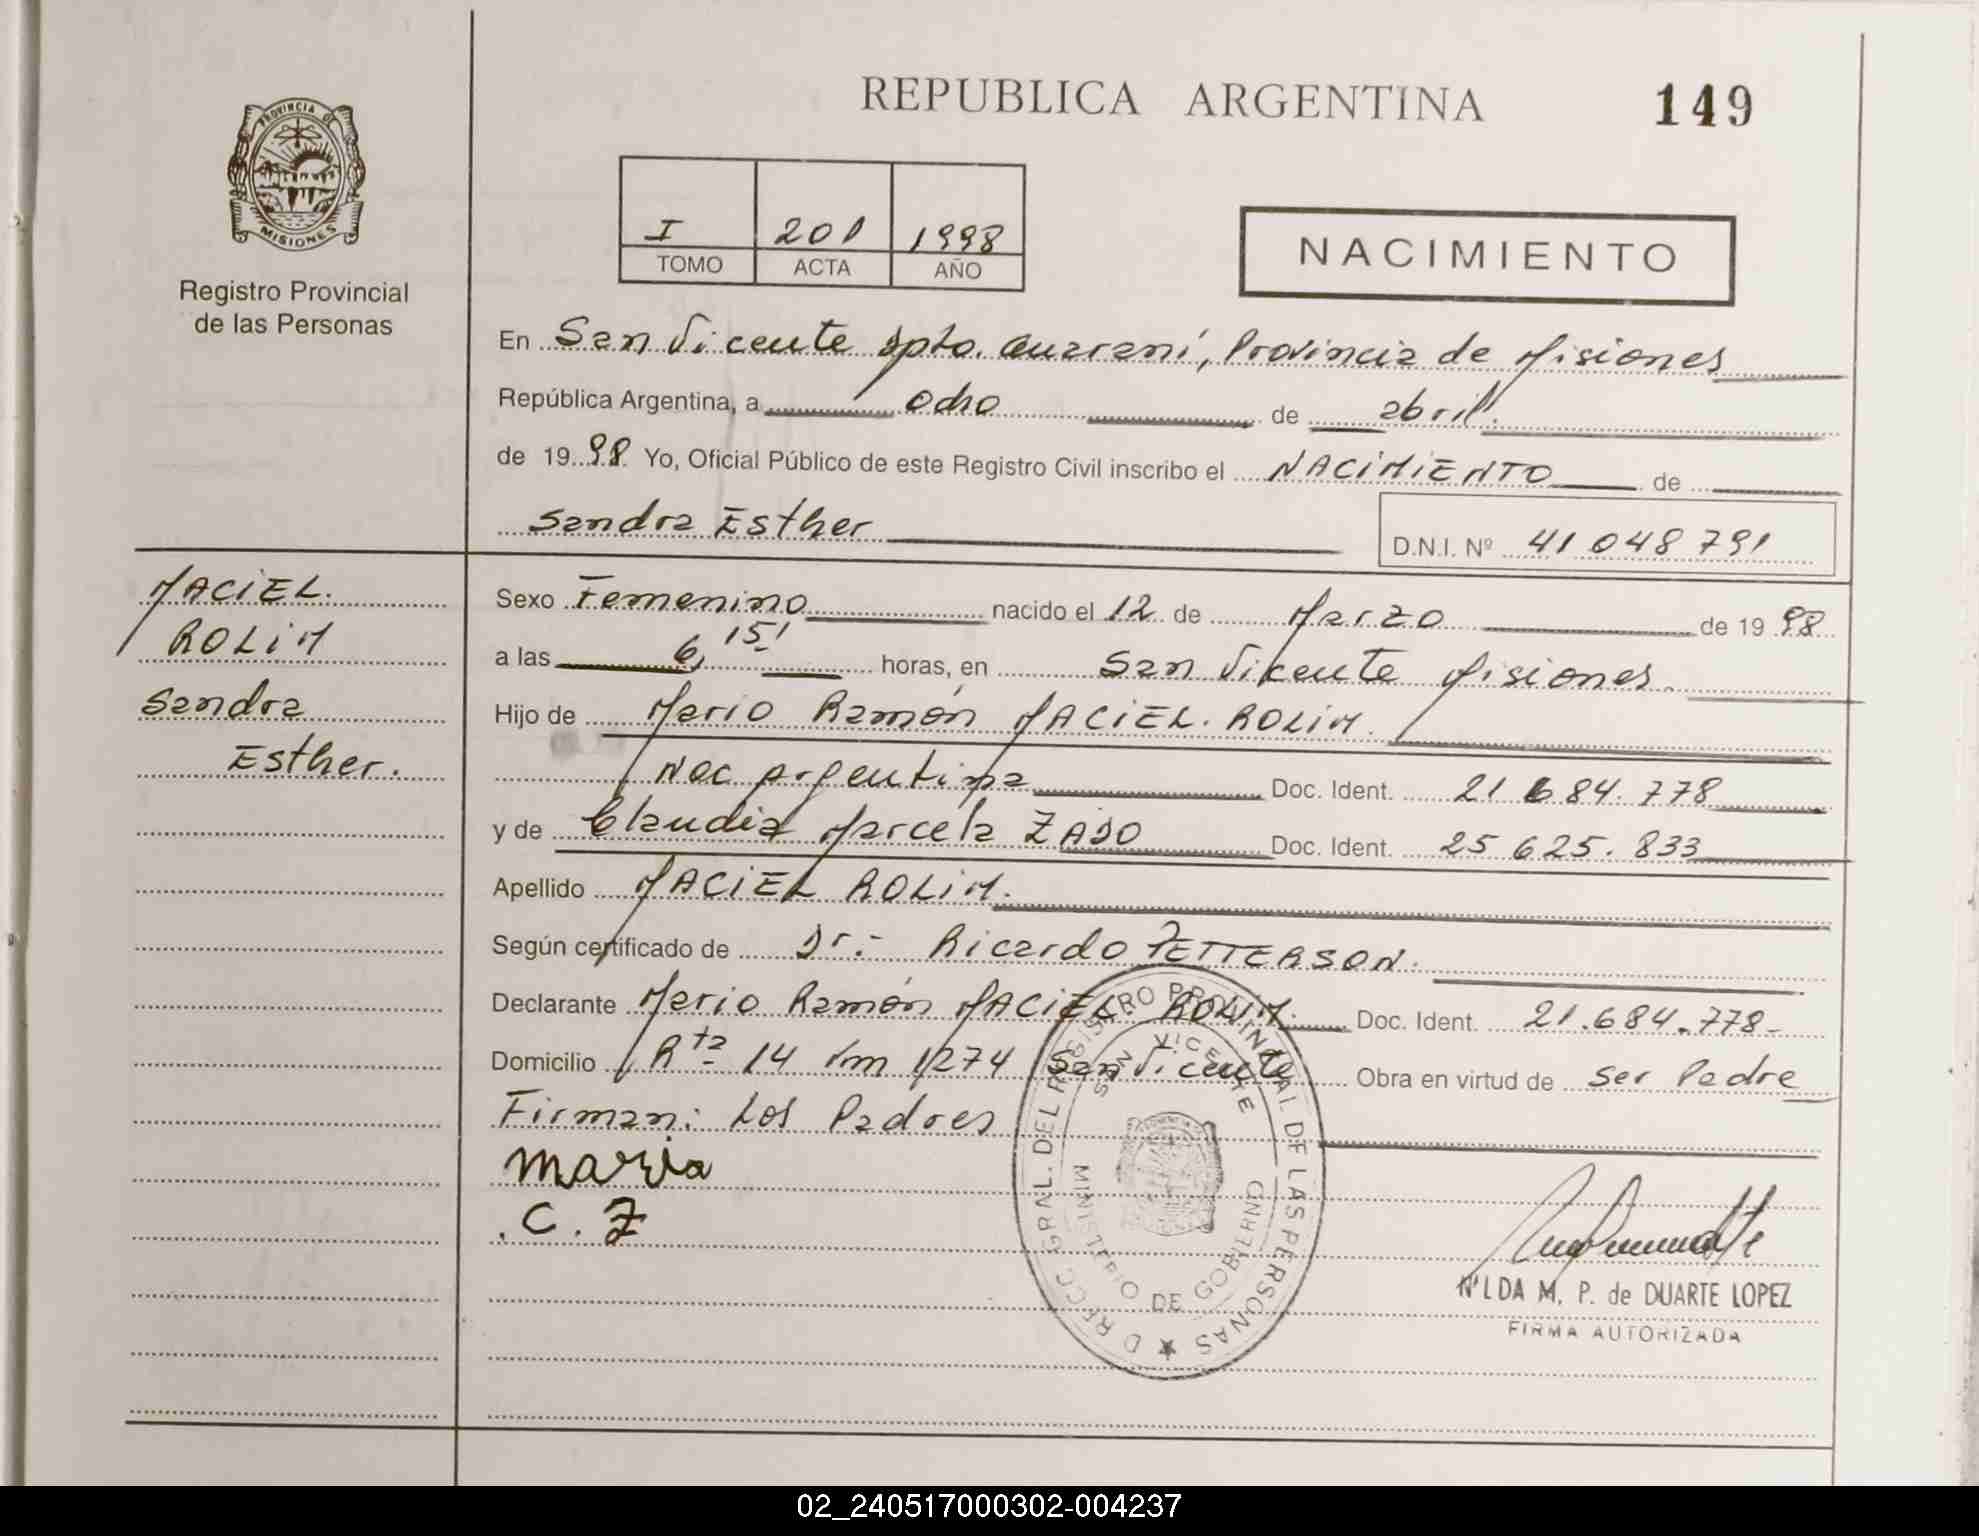 REPUBLICA ARGENTINA
149
PROVINCIA DE
MISIONES
Registro Provincial
de las Personas
I 201 1998
TOMO ACTA AÑO
NACIMIENTO
En San Vicente Dpto. Guaraní, Provincia de Misiones
República Argentina, a ocho de abril.
de 1998 Yo, Oficial Público de este Registro Civil inscribo el NACIMIENTO de
Sandra Esther
D.N.I. Nº 41 048 791
MACIEL.
ROLIM
Sandra
Esther.
Sexo Femenino nacido el 12 de Marzo de 1998
a las 6,15' horas, en San Vicente Misiones.
Hijo de Mario Ramón MACIEL. ROLIM.
Nac Argentina Doc. Ident. 21 684. 778
y de Claudia Marcela Doc. Ident. 25 625. 833
Apellido MACIEL ROLIM.
Según certificado de Dr.- Ricardo PETTERSON.
Declarante Mario Ramón MACIEL ROLIM. Doc. Ident. 21.684.778-
Domicilio Rta 14 Km 1274 San Vicente Obra en virtud de ser Padre
Firman: Los Padres
C. Z
DIRECC GRAL. DEL REGISTRO PROVINCIAL DE LAS PERSONAS
SAN VICENTE
MINISTERIO DE GOBIERNO
NILDA M. P. de DUARTE LOPEZ
FIRMA AUTORIZADA
02_240517000302-004237